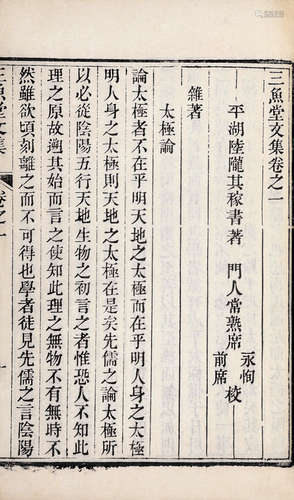 三魚堂文集卷之一
平湖陸隴其稼書著
門人常熟席
永恂
前席
校
雜著
太極論
論太極者不在乎明天地之太極而在乎明人身之太極
明人身之太極則天地之太極在是矣先儒之論太極所
以必從陰陽五行天地生物之初言之者惟恐人不知此
理之原故遡其始而言之使知此理之無物不有無時不
然雖欲頃刻離之而不可得也學者徒見先儒之言陰陽
三魚堂文集
卷之一
一